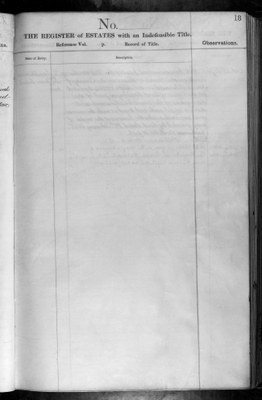 18
No.
THE REGISTER of ESTATES with an Indefeasible Title.
Reference Vol. p. Record of Title.
Observations.
Date of Entry.
Description.